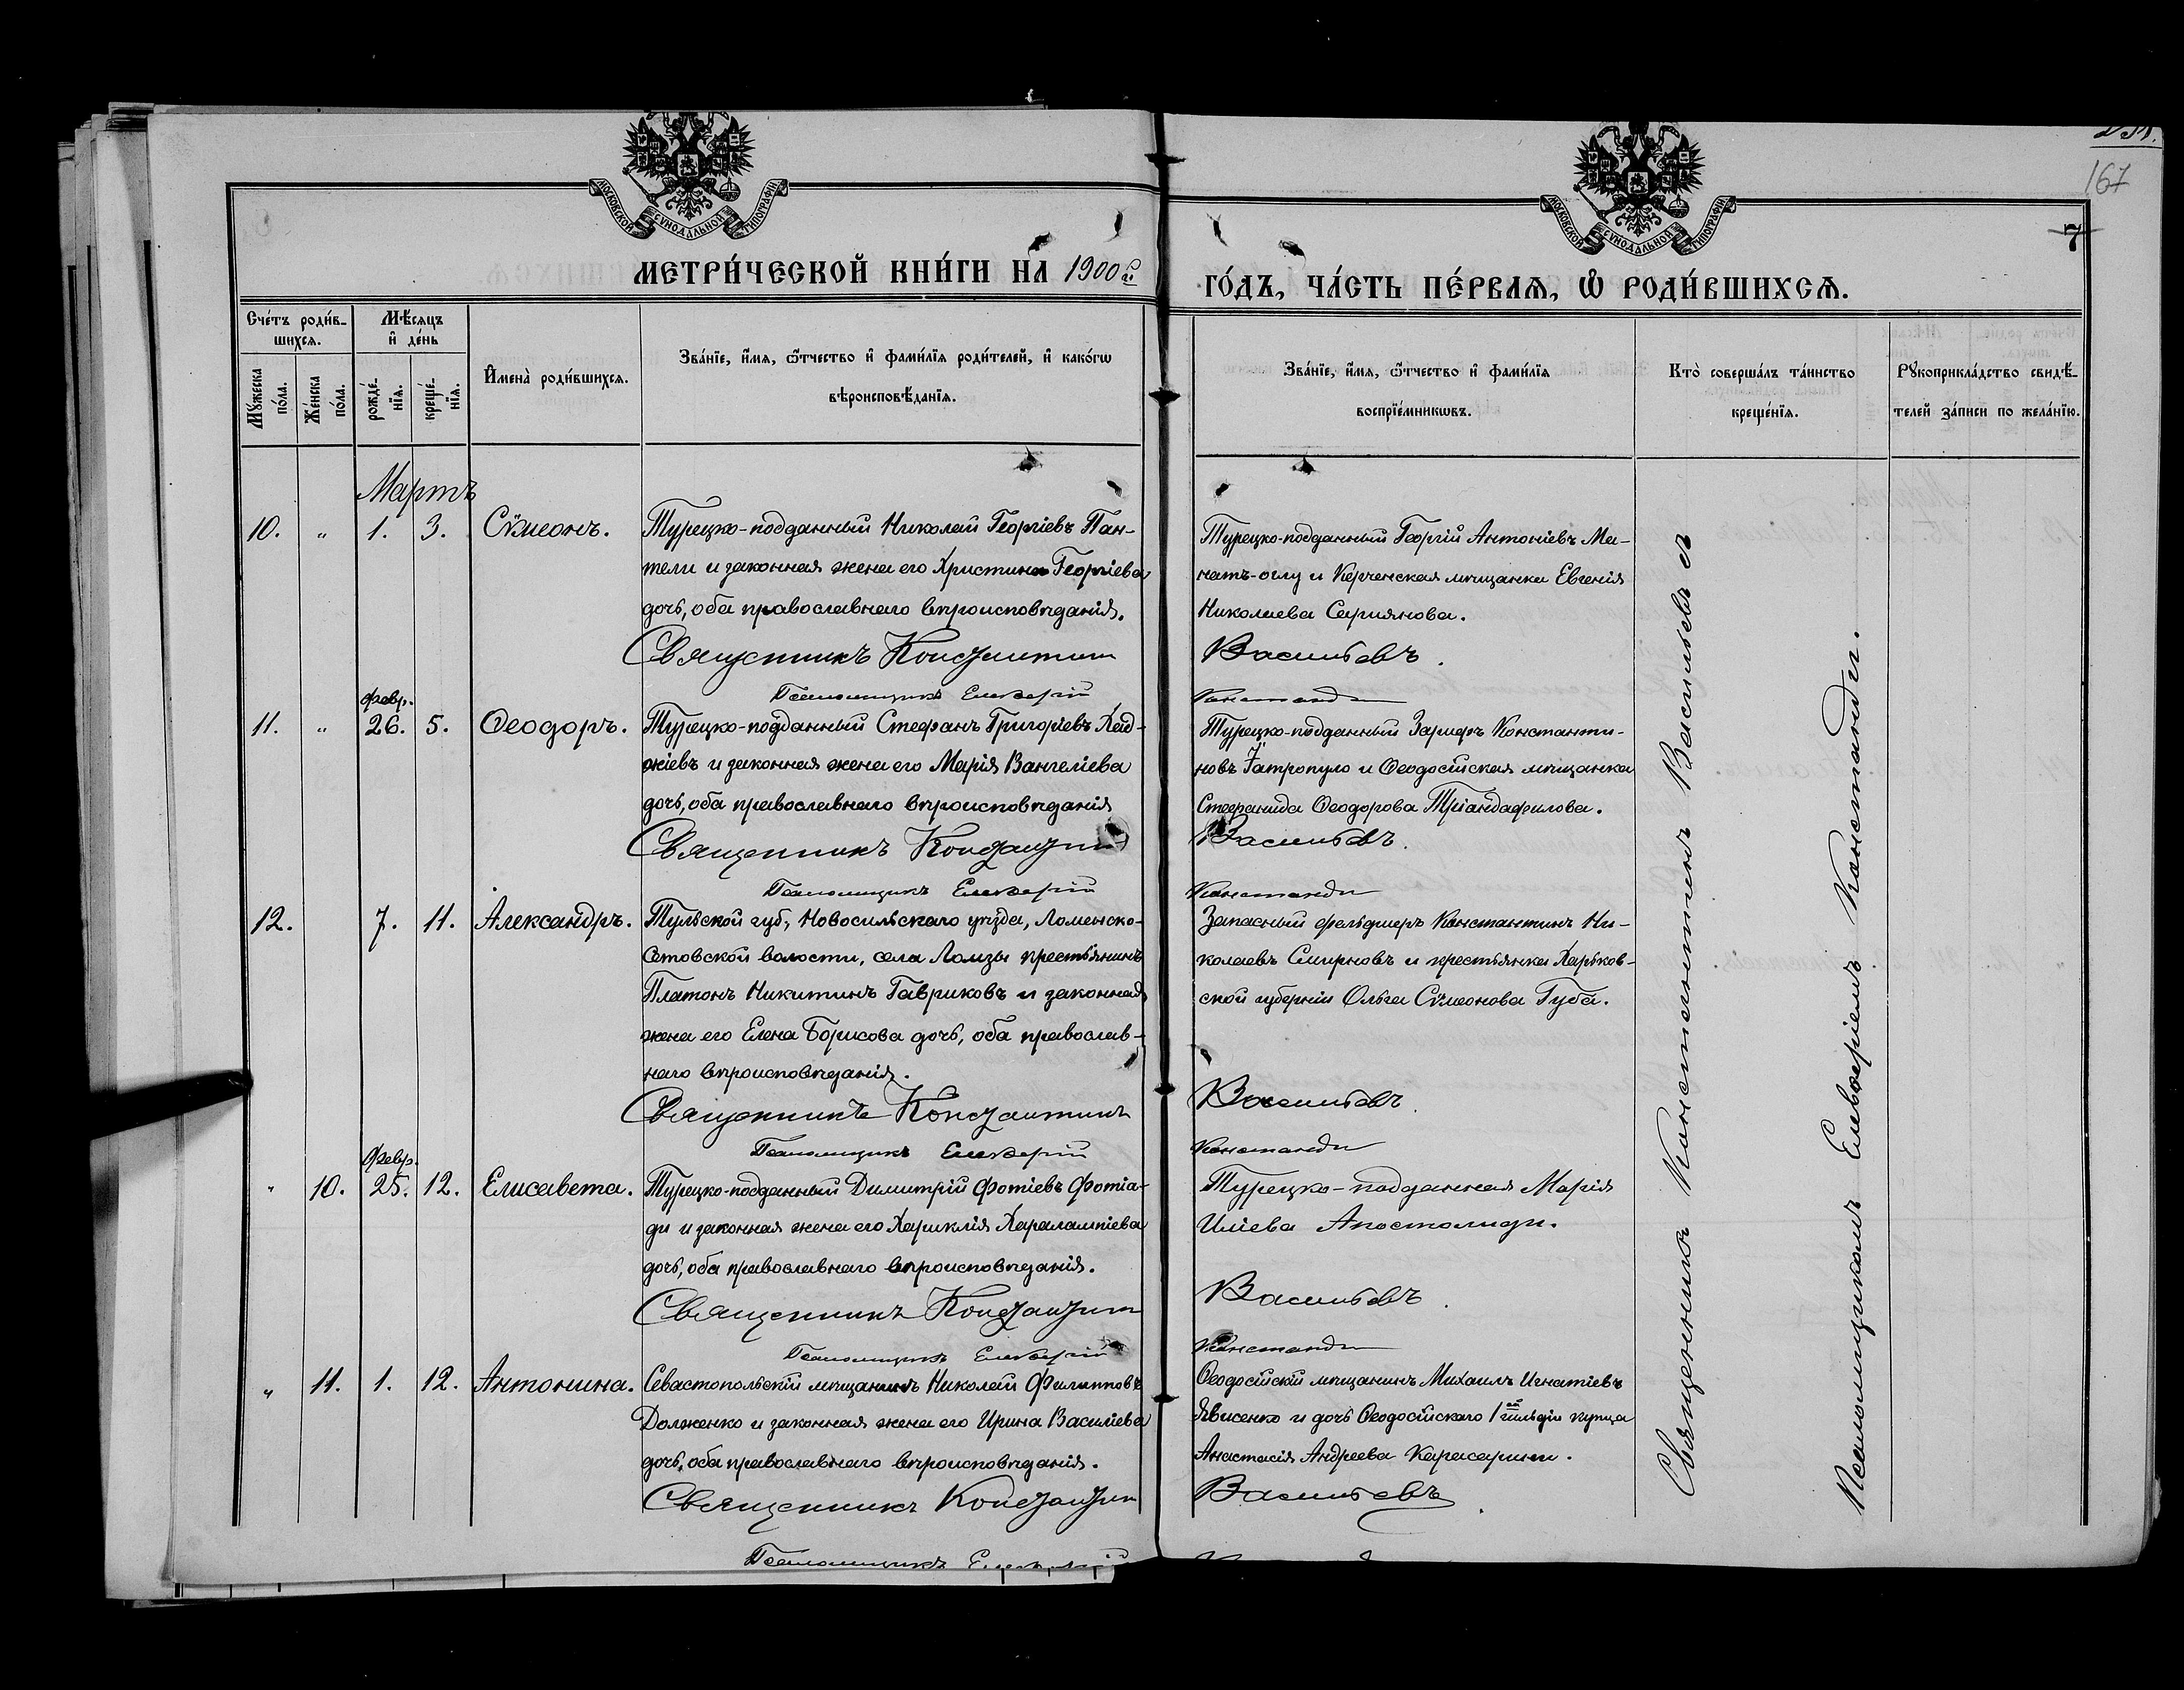 167
7
МОСКОВСКОЙ СУНОДАЛЬНОЙ ТИПОГРАФІИ
МОСКОВСКОЙ СУНОДАЛЬНОЙ ТИПОГРАФІИ
МЕТРИ́ЧЕСКОЙ КНИ́ГИ НА 1900й
ГО́ДЪ, ЧА́СТЬ ПЕ́РВАѦ, Ѡ҆ РОДИ́ВШИХСѦ.
Сче́тъ роди́в-
шихсѧ.
Мѣ́сяцъ
и҆ де́нь
Мꙋ́жеска
по́ла.
Же́нска
по́ла.
рожде́-
нїѧ.
креще́-
нїѧ.
И҆мена̀ роди́вшихсѧ.
Зва́нїе, и҆́мѧ, ѻ҆́тчество и҆ фами́лїѧ роди́телей, и҆ како́гѡ
вѣроисповѣ́данїѧ.
Зва́нїе, и҆́мѧ, ѻ҆́тчество и҆ фами́лїѧ
воспрїе́мникѡвъ.
Кто̀ соверша́лъ та́инство
креще́нїѧ.
Рꙋкоприкла́дство свидѣ́-
телей за́писи по жела́нїю.
Мартъ
10. " 1. 3. Сѵмеонъ.
Турецко-подданный Николай Георгіевъ Пан-
тели и законная жена его Христина Георгіева
дочь, оба православнаго вѣроисповѣданія.
Священникъ Константин
Псаломщикъ Елевѳерій
Турецко-подданный Георгій Антоніевъ Ма-
натъ-оглу и Керченская мѣщанка Евгенія
Николаева Сариянова.
Васильевъ.
Констанди
февр.
11. " 26. 5. Ѳеодоръ.
Турецко-подданный Стефанъ Григоріевъ Хад-
жіевъ и законная жена его Марія Вангеліева
дочь, оба православнаго вѣроисповѣданія
Священникъ Константин
Псаломщикъ Елевѳерій
Турецко-подданный Константи-
новъ Ѳеодосійская мѣщанка
Стефанида Ѳеодорова Тріандафилова.
Васильевъ.
Констанди
12. 7. 11. Александръ.
Тульской губ., Новосильскаго уѣзда,
волости, села крестьянинъ
Платонъ Никитинъ Гавриковъ и законная
жена его Елена Борисова дочь, оба православ-
наго вѣроисповѣданія.
Священникъ Константинъ
Псаломщикъ Елевѳерій
Запасный фельдшеръ Константинъ Ни-
колаевъ Смирновъ и крестьянка Харьков-
ской губерніи Ольга Сѵмеонова Губа.
Васильевъ.
Констанди
февр.
" 10. 25. 12. Елисавета.
Турецко-подданный Димитрій Фотіевъ Фотіа-
ди и законная жена его Хариклія Харалампіева
дочь, оба православнаго вѣроисповѣданія.
Священникъ Константин
Псаломщикъ Елевѳерій
Турецко-подданная Марія
Иліева Апостолиди.
Васильевъ.
Констанди
" 11. 1. 12. Антонина.
Севастопольскій мѣщанинъ Николай Филипповъ
Долженко и законная жена его Ирина Василіева
дочь, оба православнаго вѣроисповѣданія.
Священникъ Константин
Псаломщикъ
Ѳеодосійскій мѣщанинъ Михаилъ Игнатіевъ
Явисенко и дочь Ѳеодосійскаго 1ой гильдіи купца
Анастасія Андреева
Васильевъ.
Священникъ Константинъ Васильевъ съ
Псаломщикомъ Елевѳеріемъ Констанди.